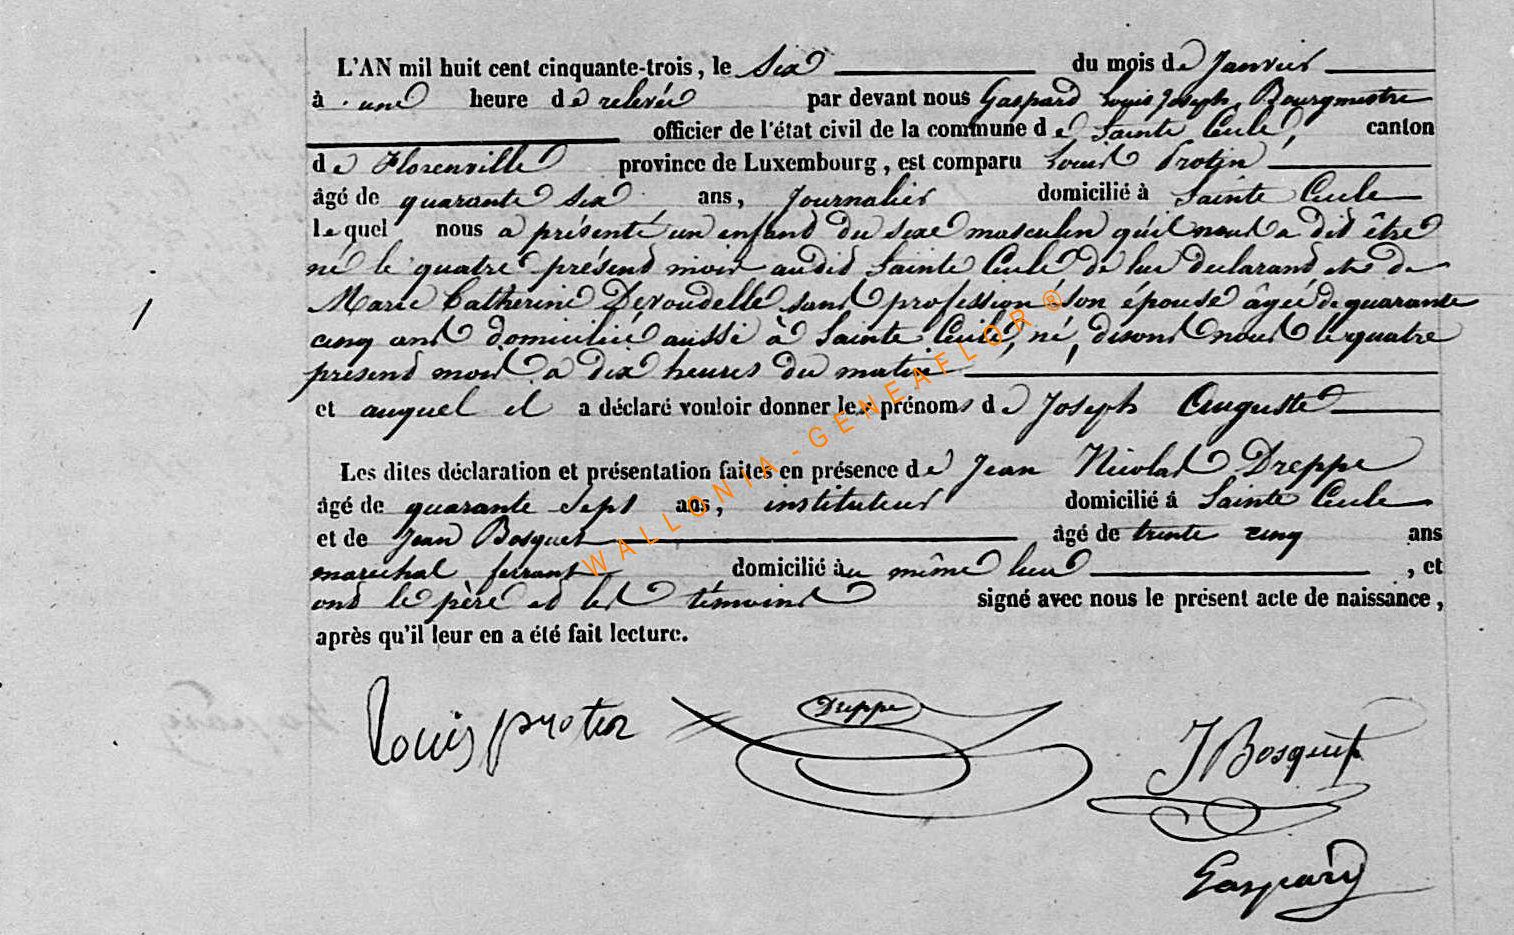 L'AN mil huit cent cinquante-trois, le six du mois de Janvier
à une heure de relevée par devant nous Gaspard Louis Joseph, Bourgmestre
officier de l'état civil de la commune de Sainte Cecile, canton
de Florenville province de Luxembourg, est comparu Louis Protin
âgé de quarante six ans, Journalier domicilié à Sainte Cecile
lequel nous a présenté un enfant du sexe masculin qu'il nous a dit être
né le quatre présend mois audid Sainte Cecile de lui declarand et de
Marie Catherine Devoudelle sans profession son épouse âgée de quarante
cinq ans domiciliée aussi à Sainte Cecile, né, disons nous le quatre
présend mois a dix heures du matin
et auquel il a déclaré vouloir donner les prénoms de Joseph Auguste
Les dites déclaration et présentation faites en présence de Jean Nicolas Dreppe
âgé de quarante sept ans, instituteur domicilié à Sainte Cecile
et de Jean Bosquet âgé de trente cinq ans
marechal ferrant domicilié au même lieu, et
ond le père et les témoins signé avec nous le présent acte de naissance,
après qu'il leur en a été fait lecture.
Louis protin Dreppe J Bosquet
Gaspard
WALLONIA-GENEAFLOR®